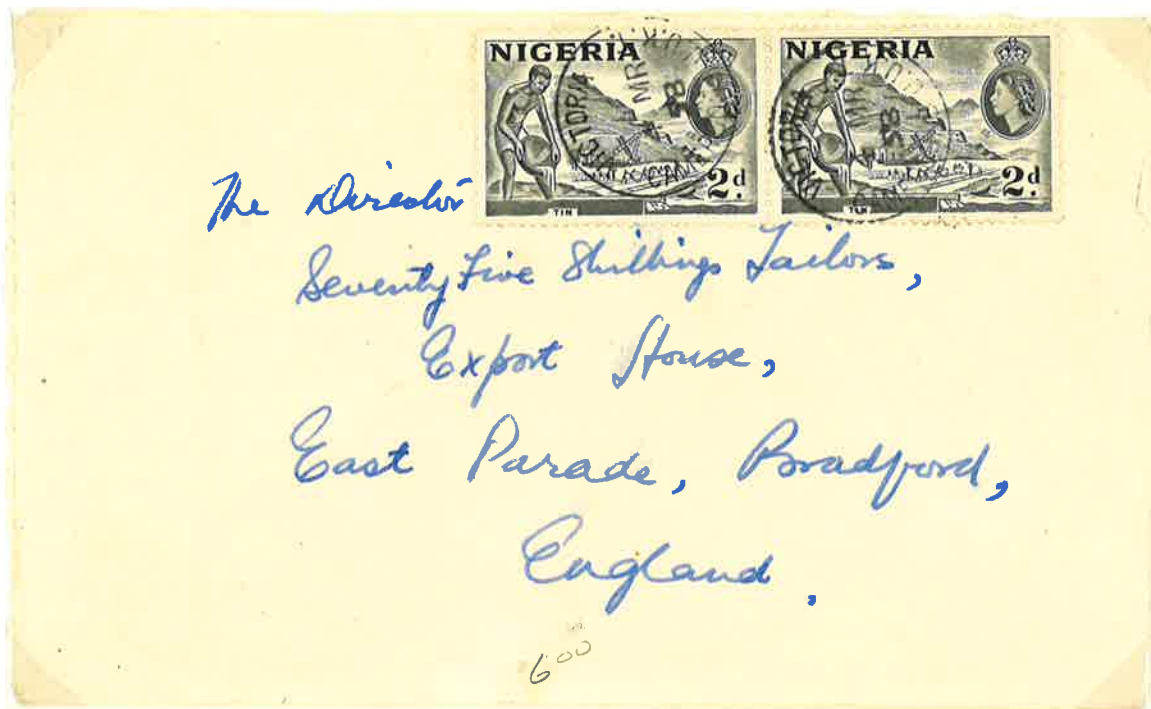 NIGERIA NIGERIA
2d. 2d.
TIN TIN
VICTORIA
MR
58
The Director
Seventy Five Shillings Tailors,
Export House,
East Parade, Bradford,
England.
600